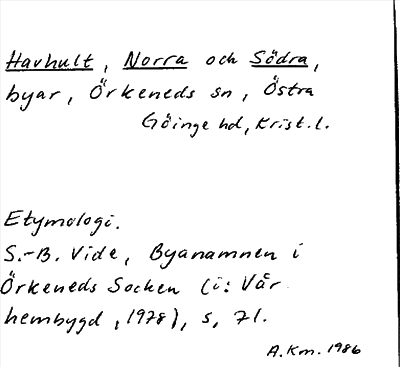 Havhult, Norra och Södra,
byar, Örkeneds sn, Östra
Göinge hd, Krist. l.
Etymologi.
S.-B. Vide, Byanamnen i
Örkeneds Socken (i: Vår
hembygd, 1978), s, 71.
A. Km. 1986